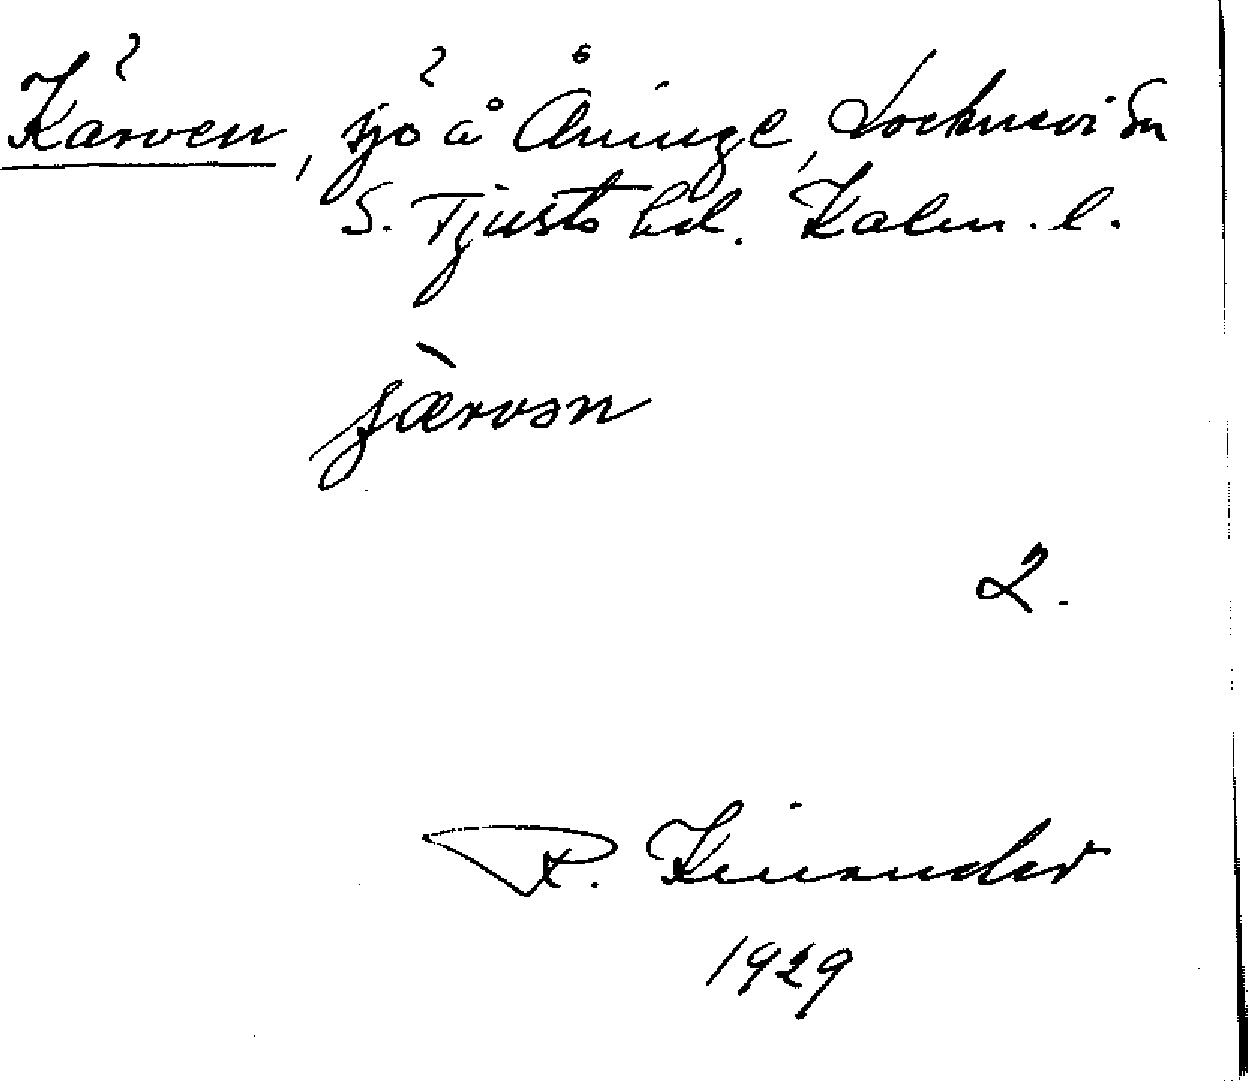 Kärven, sjö å Åninge, Locknevi sn
S. Tjusts hd. Kalm. l.
jæ̀rvən
2.
R. Kinander
1929